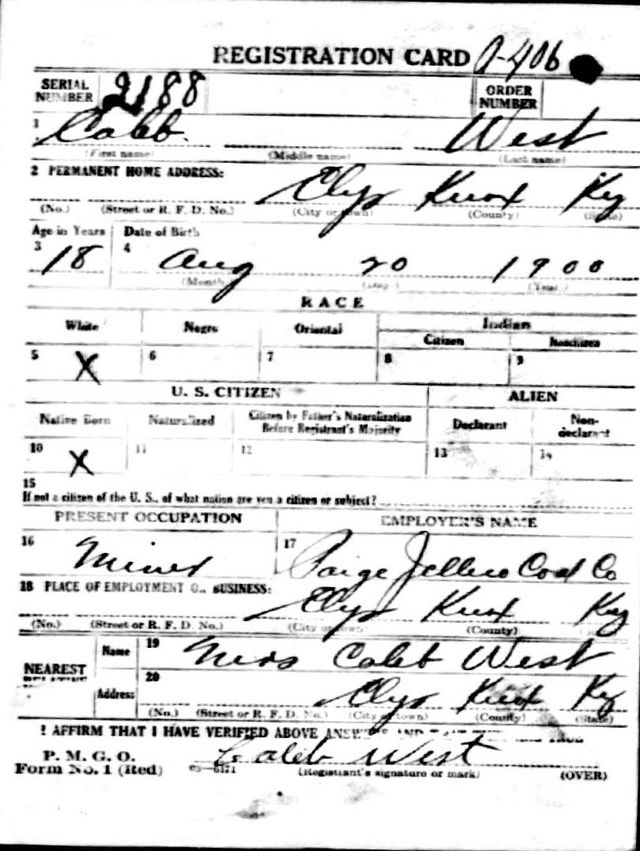 REGISTRATION CARD A-406
SERIAL NUMBER 2188 ORDER NUMBER
1 Caleb West
(First name) (Middle name) (Last name)
2 PERMANENT HOME ADDRESS:
Elys Knox Ky
(No.) (Street or R. F. D. No.) (City or town) (County) (State)
Age in Years Date of Birth
3 18 4 Aug 20 1900
(Month) (Day) (Year)
RACE
White Negro Oriental Indian
Citizen Noncitizen
5 X 6 7 8 9
U. S. CITIZEN ALIEN
Native Born Naturalized Citizen by Father's Naturalization Before Registrant's Majority Declarant Non-declarant
10 X 11 12 13 14
15
If not a citizen of the U. S., of what nation are you a citizen or subject?
PRESENT OCCUPATION EMPLOYER'S NAME
16 Miner 17 Paige Jellico Coal Co
18 PLACE OF EMPLOYMENT OR BUSINESS:
Elys Knox Ky
(No.) (Street or R. F. D. No.) (City or town) (County)
NEAREST RELATIVE Name 19 Mrs Caleb West
Address 20 Elys Knox Ky
(No.) (Street or R. F. D. No.) (City or town) (County) (State)
I AFFIRM THAT I HAVE VERIFIED ABOVE ANSWERS AND THAT THEY ARE TRUE
P. M. G. O.
Form No. 1 (Red) 03-6171 Caleb West
(Registrant's signature or mark) (OVER)